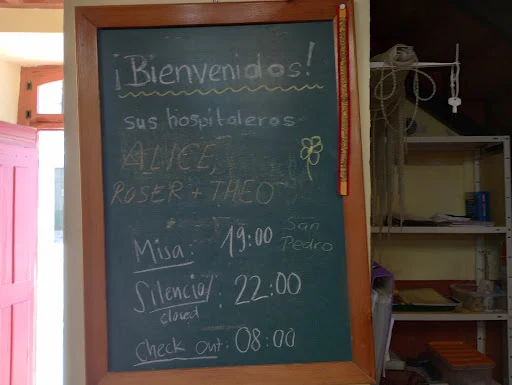 ¡Bienvenidos!
sus hospitaleros
ALICE,
ROSER + THEO
Misa: 19:00 San Pedro
Silencio/ closed : 22:00
Check out: 08:00